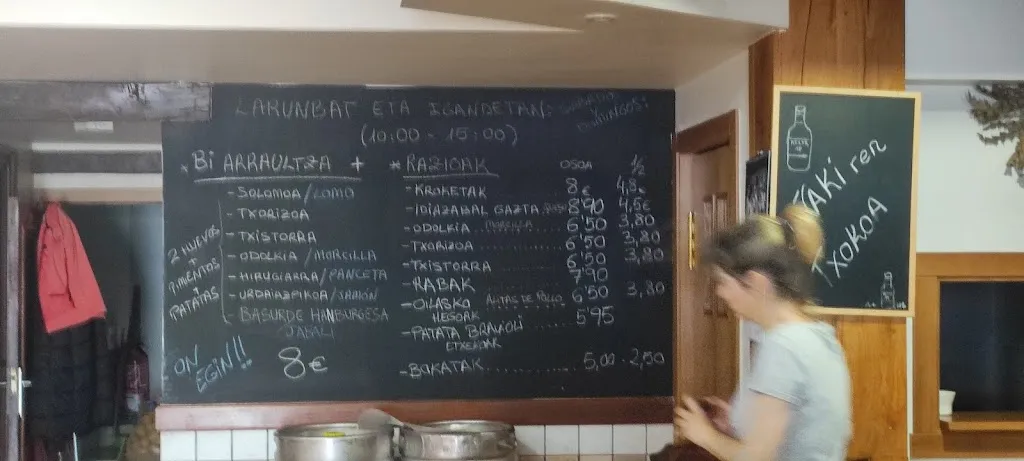 LARUNBAT ETA IGANDETAN:
(10:00 - 15:00)
* BI ARRAULTZA +
- SOLOMOA/LOMO
- TXORIZOA
- TXISTORRA
- ODOLKIA/MORCILLA
- HIRUGIARRA/PANCETA
- URDAIAZPIKOA/JAMÓN
- BASURDE HANBURGESA
JABALI
2 HUEVOS
+
PIMIENTOS
+
PATATAS
ON EGIN!!
8€
* RAZIOAK OSOA 1/2
- KROKETAK 8€ 4,5€
- IDIAZABAL GAZTA 8'90 4,5€
- ODOLKIA MORCILLA 6'50 3,80
- TXORIZOA 6'50 3,80
- TXISTORRA 6'50 3,80
- RABAK 7'90
- OILASKO HEGOAK ALITAS DE POLLO 6'50 3,80
- PATATA BRAVIOLI ETXEKOAK 5'95
- BOKATAK 5,00 - 2,50
TAKI ren
TXOKOA